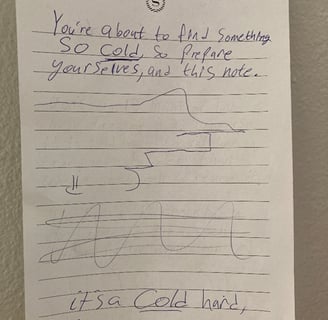 S
You're about to find something
So cold, so prepare
yourselves, and this note.
it's a Cold hard,